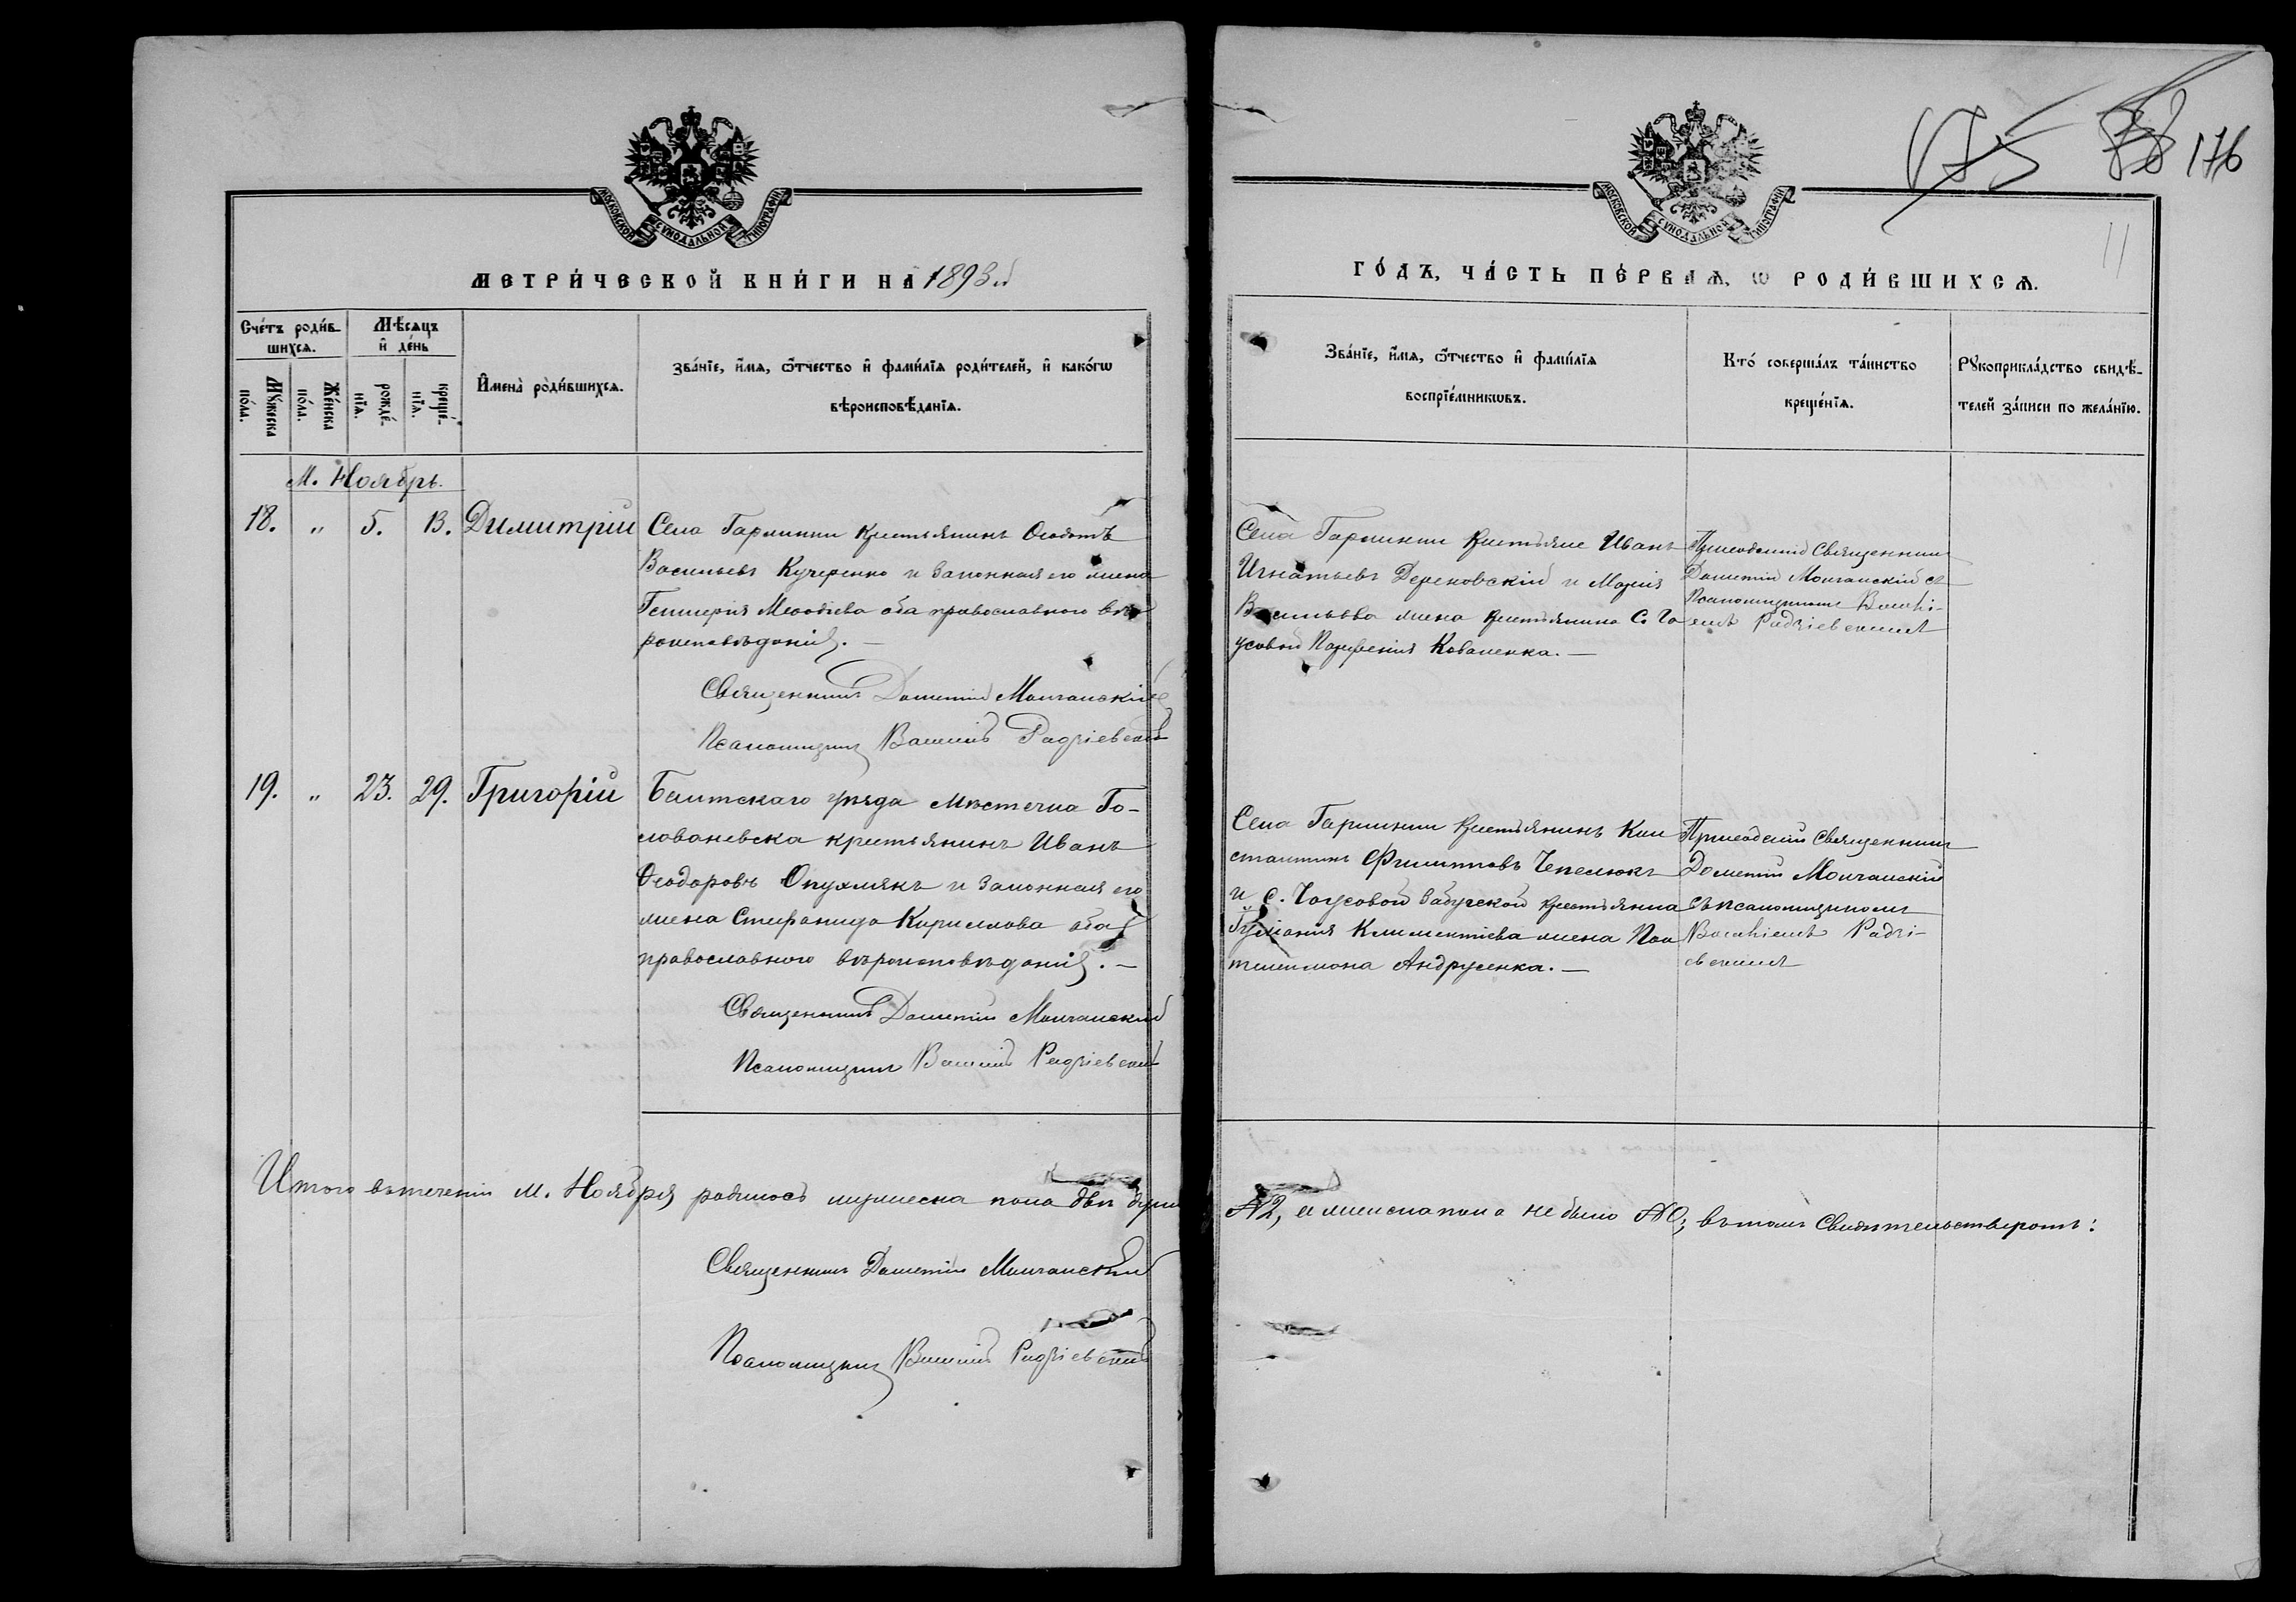 175 176
11
МОСКОВСКОЙ СѴНОДАЛЬНОЙ ТИПОГРАФІИ
МЕТРИ́ЧЕСКОЙ КНИ́ГИ НА 1893й
Сче́тъ роди́вшихсѧ.
Мѣ́сѧцъ и҆ де́нь
Мꙋ́жеска по́ла.
Же́нска по́ла.
рожде́нїѧ.
креще́нїѧ.
И҆мена̀ роди́вшихсѧ.
Зва́нїе, и҆́мѧ, ѻ҆́тчество и҆ фами́лїѧ роди́телей, и҆ како́гѡ
вѣроисповѣ́данїѧ.
М. Ноябрь.
18. " 5. 13. Димитрій
Села Гармики крестьянинъ Ѳеодотъ
Васильевъ Кучеренко и законная его жена
Гликерія Меѳодіева оба православнаго вѣ-
роисповѣданія. —
Священникъ Дометій Молчанскій
Псаломщикъ Василій Радзіевскій
19. " 23. 29. Григорій
Балтскаго уѣзда мѣстечка Го-
лованевска крестьянинъ Иванъ
Ѳеодоровъ Опухлякъ и законная его
жена Стефанида Кириллова оба
православнаго вѣроисповѣданія. —
Священникъ Дометій Молчанскій
Псаломщикъ Василій Радзіевскій
Итого въ теченіи м. Ноября родилось мужеска пола двѣ души
Священникъ Дометій Молчанскій
Псаломщикъ Василій Радзіевскій
МОСКОВСКОЙ СѴНОДАЛЬНОЙ ТИПОГРАФІИ
ГО́ДЪ, ЧА́СТЬ ПЕ́РВАѦ, Ѡ РОДИ́ВШИХСѦ.
Зва́нїе, и҆́мѧ, ѻ҆́тчество и҆ фами́лїѧ
воспрїе́мникѡвъ.
Кто́ соверша́лъ та́инство
креще́нїѧ.
Рꙋкоприкла́дство свидѣ́-
телей за́писи по жела́нїю.
Села Гармики крестьяне Иванъ
Игнатьевъ Дереновскій и Марія
Васильева жена крестьянина С. Ча
усовой Парѳенія Коваленка. —
Приходскій Священникъ
Дометій Молчанскій съ
Псаломщикомъ Василі-
емъ Радзіевскимъ
Села Гармики крестьянинъ Кон
стантинъ Филипповъ Чепелюкъ
и с. Чаусовой крестьянина
Климентіева жена Пан
телимона Андрусенка. —
Приходскій Священникъ
Дометій Молчанскій
съ псаломщикомъ
Василіемъ Радзі-
евскимъ
№2, а женска пола не было №0; въ томъ свидѣтельствуютъ: